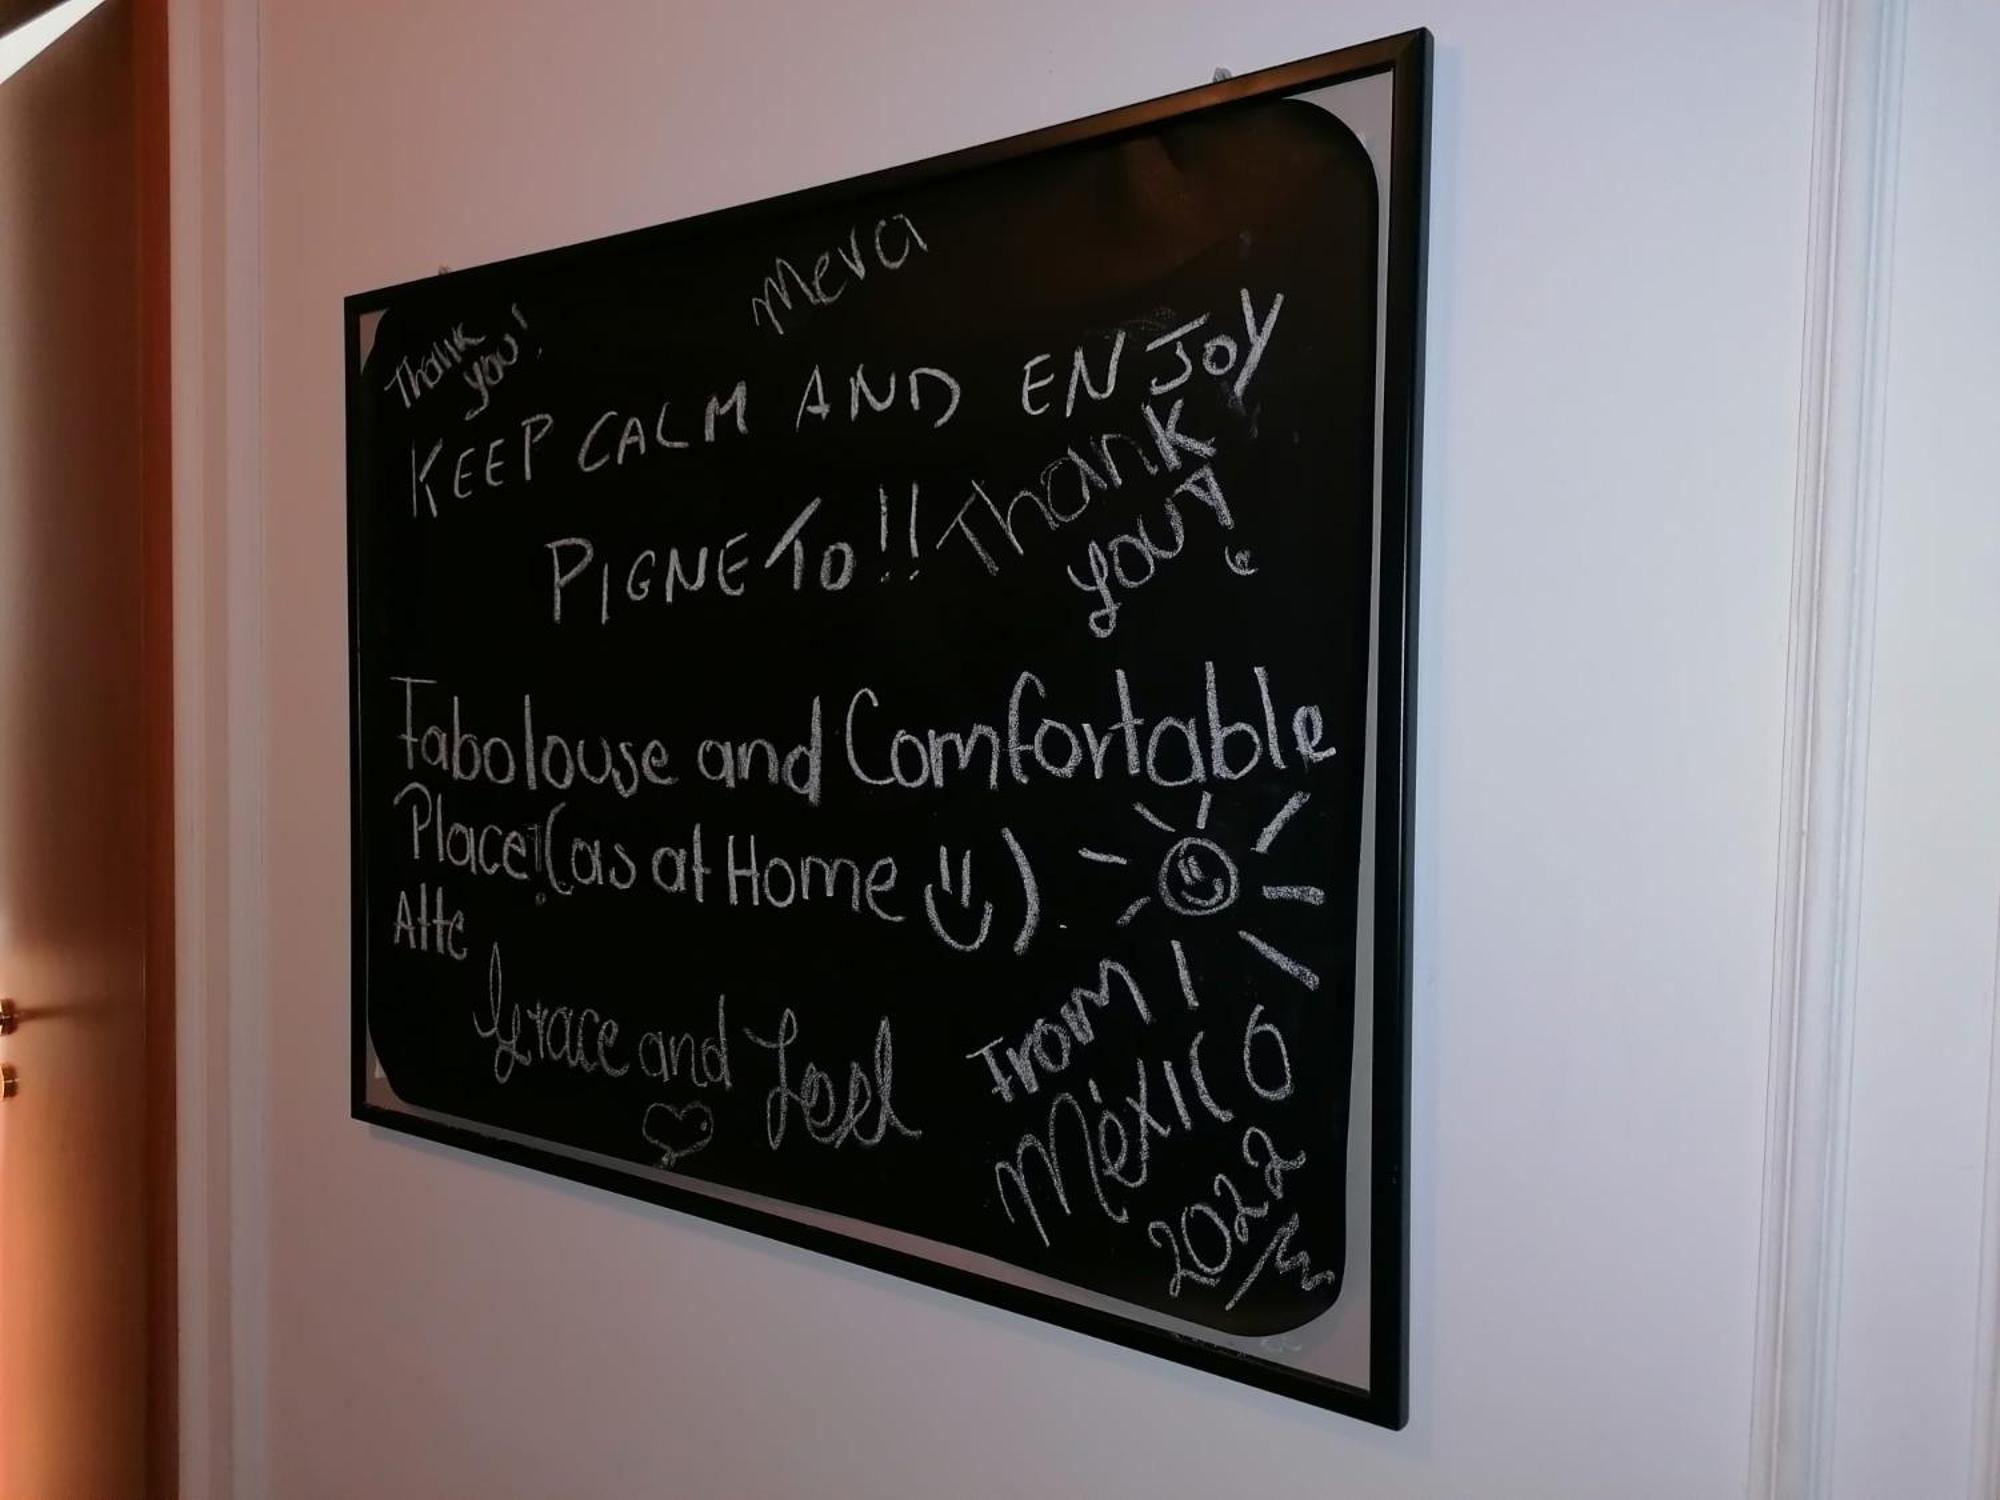 Merci
Thank
you!
KEEP CALM AND ENJOY
PIGNETO!!
Thank
you!
Fabolouse and Comfortable
Place! (as at Home )
Atte
Grace and
From
México
2022